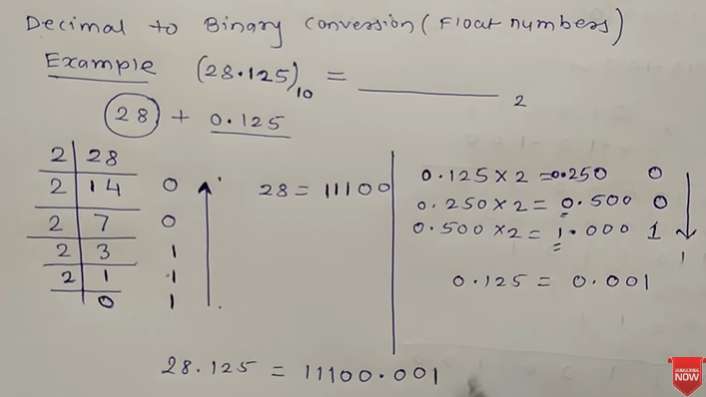 Decimal to Binary Conversion (Float numbers)
Example (28.125)10 = ________ 2
28 + 0.125
2 28
2 14 0
2 7 0
2 3 1
2 1 1
0 1
28 = 11100
0.125 × 2 = 0.250 0
0.250 × 2 = 0.500 0
0.500 × 2 = 1.000 1
0.125 = 0.001
28.125 = 11100.001
SUBSCRIBE
NOW